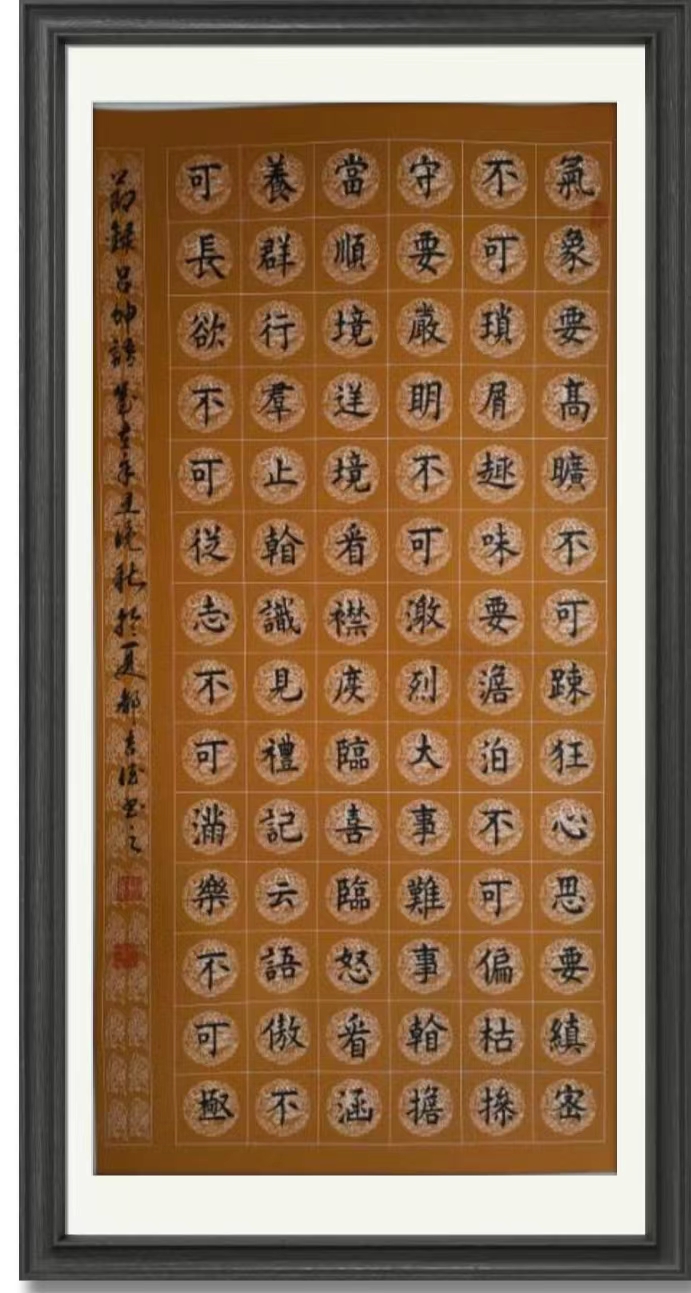 氣象要髙曠不可踈狂心思要縝密
不可瑣屑趣味要澹泊不可偏枯操
守要嚴明不可激烈大事難事看擔
當順境逆境看襟度臨喜臨怒看涵
養群行羣止看識見禮記云語傲不
可長欲不可從志不可滿樂不可極
節錄呂坤語歲在辛丑晚秋於夏都書之